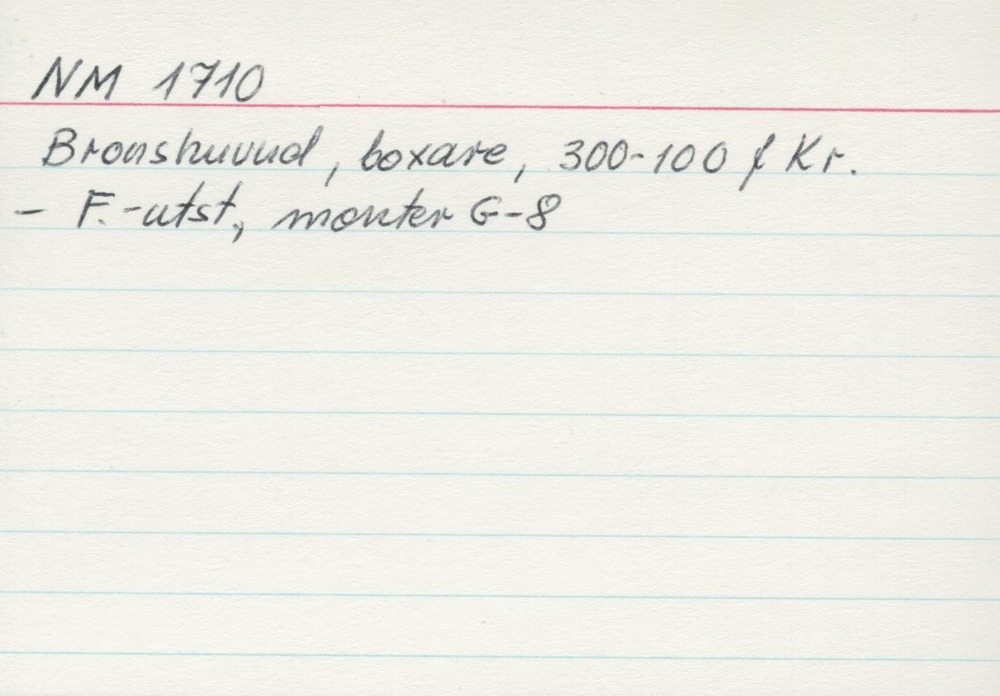 NM 1710
Bronshuvud, boxare, 300-100 f Kr.
- F.-utst, monter G-8